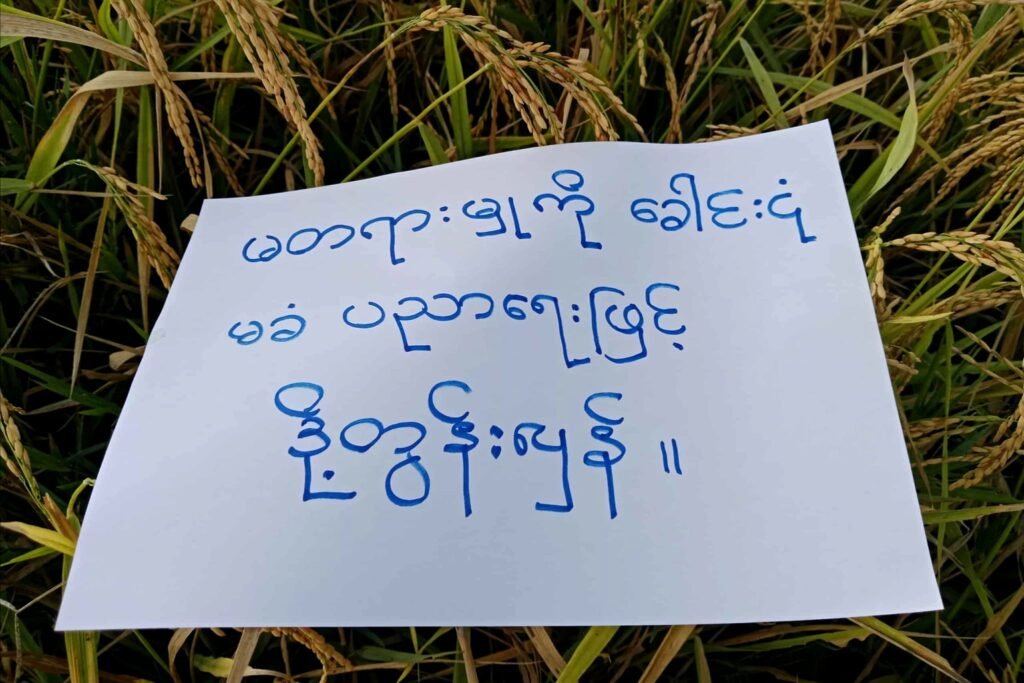 မတရားမှုကို ခေါင်းငုံ့
မခံ ပညာရေးဖြင့်
နှိုးတွန်းလှန် ။